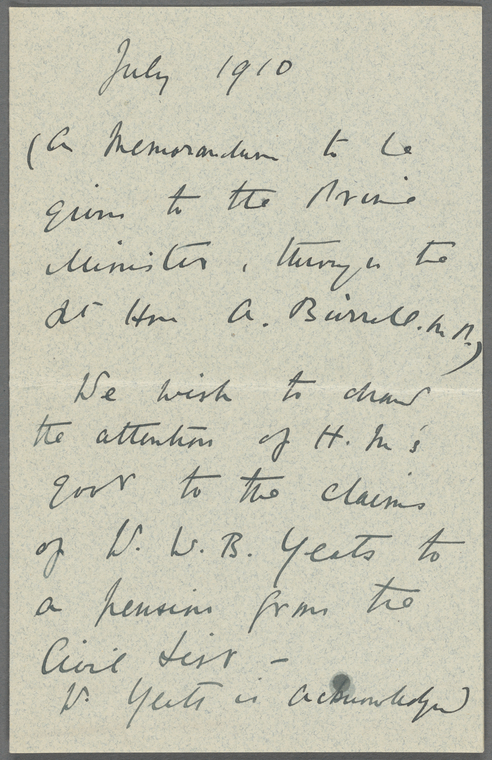 July 1910
(A Memorandum to be
given to the Prime
Minister, through the
Rt Hon A. Birrell. M.P.)
We wish to draw
the attention of H. M's
Govt to the claims
of W. B. Yeats to
a pension from the
Civil List -
Yeats is acknowledged